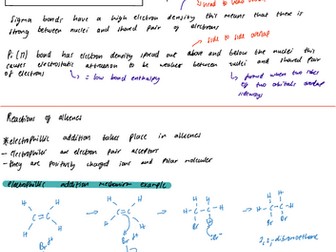 Sigma bonds have a high electron density this means that there is
strong between nuclei and shared pair of electrons
side to side overlap
Pi (π) bond has electron density spread out above and below the nuclei this
causes electrostatic attraction to be weaker between nuclei and shared pair
of electrons
= low bond enthalpy
formed when two lobes
of two orbitals overlap
sideways
Reactions of alkenes
Electrophillic addition takes place in alkenes
- electrophiles are electron pair acceptors
- they are positively charged ions and polar molecules
Electrophillic addition mechanism example
H H H H H H H H
C = C C = C H - C - C - H H - C - C - H
H H H H Br Br Br
Br
Br
:Br⁻
1,2-dibromoethane